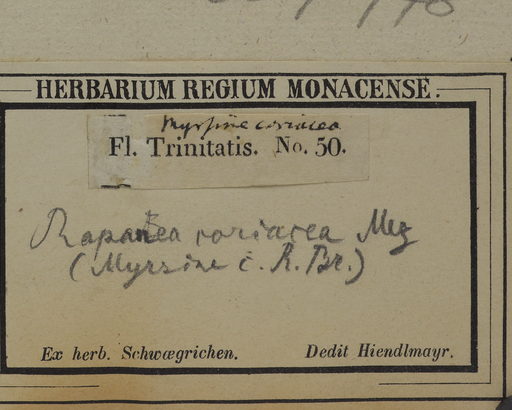 HERBARIUM REGIUM MONACENSE.
Myrsine coriacea
Fl. Trinitatis. No. 50.
Rapanea coriacea Mez
(Myrsine c. R. Br.)
Ex herb. Schwægrichen. Dedit Hiendlmayr.